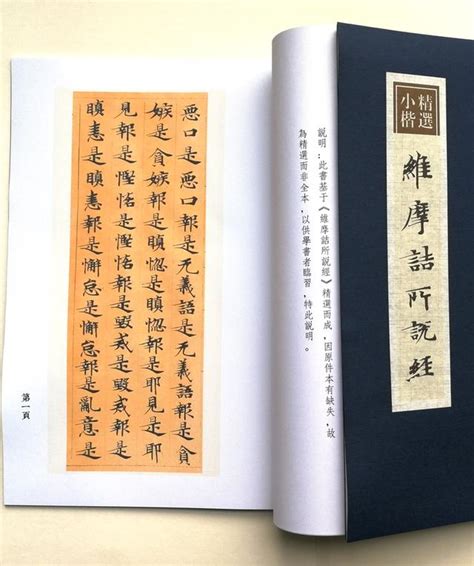 精選
小楷
維摩詰所說經
說明：此書基于《維摩詰所說經》精選而成，因原件本有缺失，故
為精選而非全本，以供學書者臨習，特此說明。
惡口是惡口報是无義語是无義語報是貪
嫉是貪嫉報是瞋惱是瞋惱報是耶見是耶
見報是慳恡是慳恡報是毀戒是毀戒報是
瞋恚是瞋恚報是懈怠是懈怠報是亂意是
第一頁